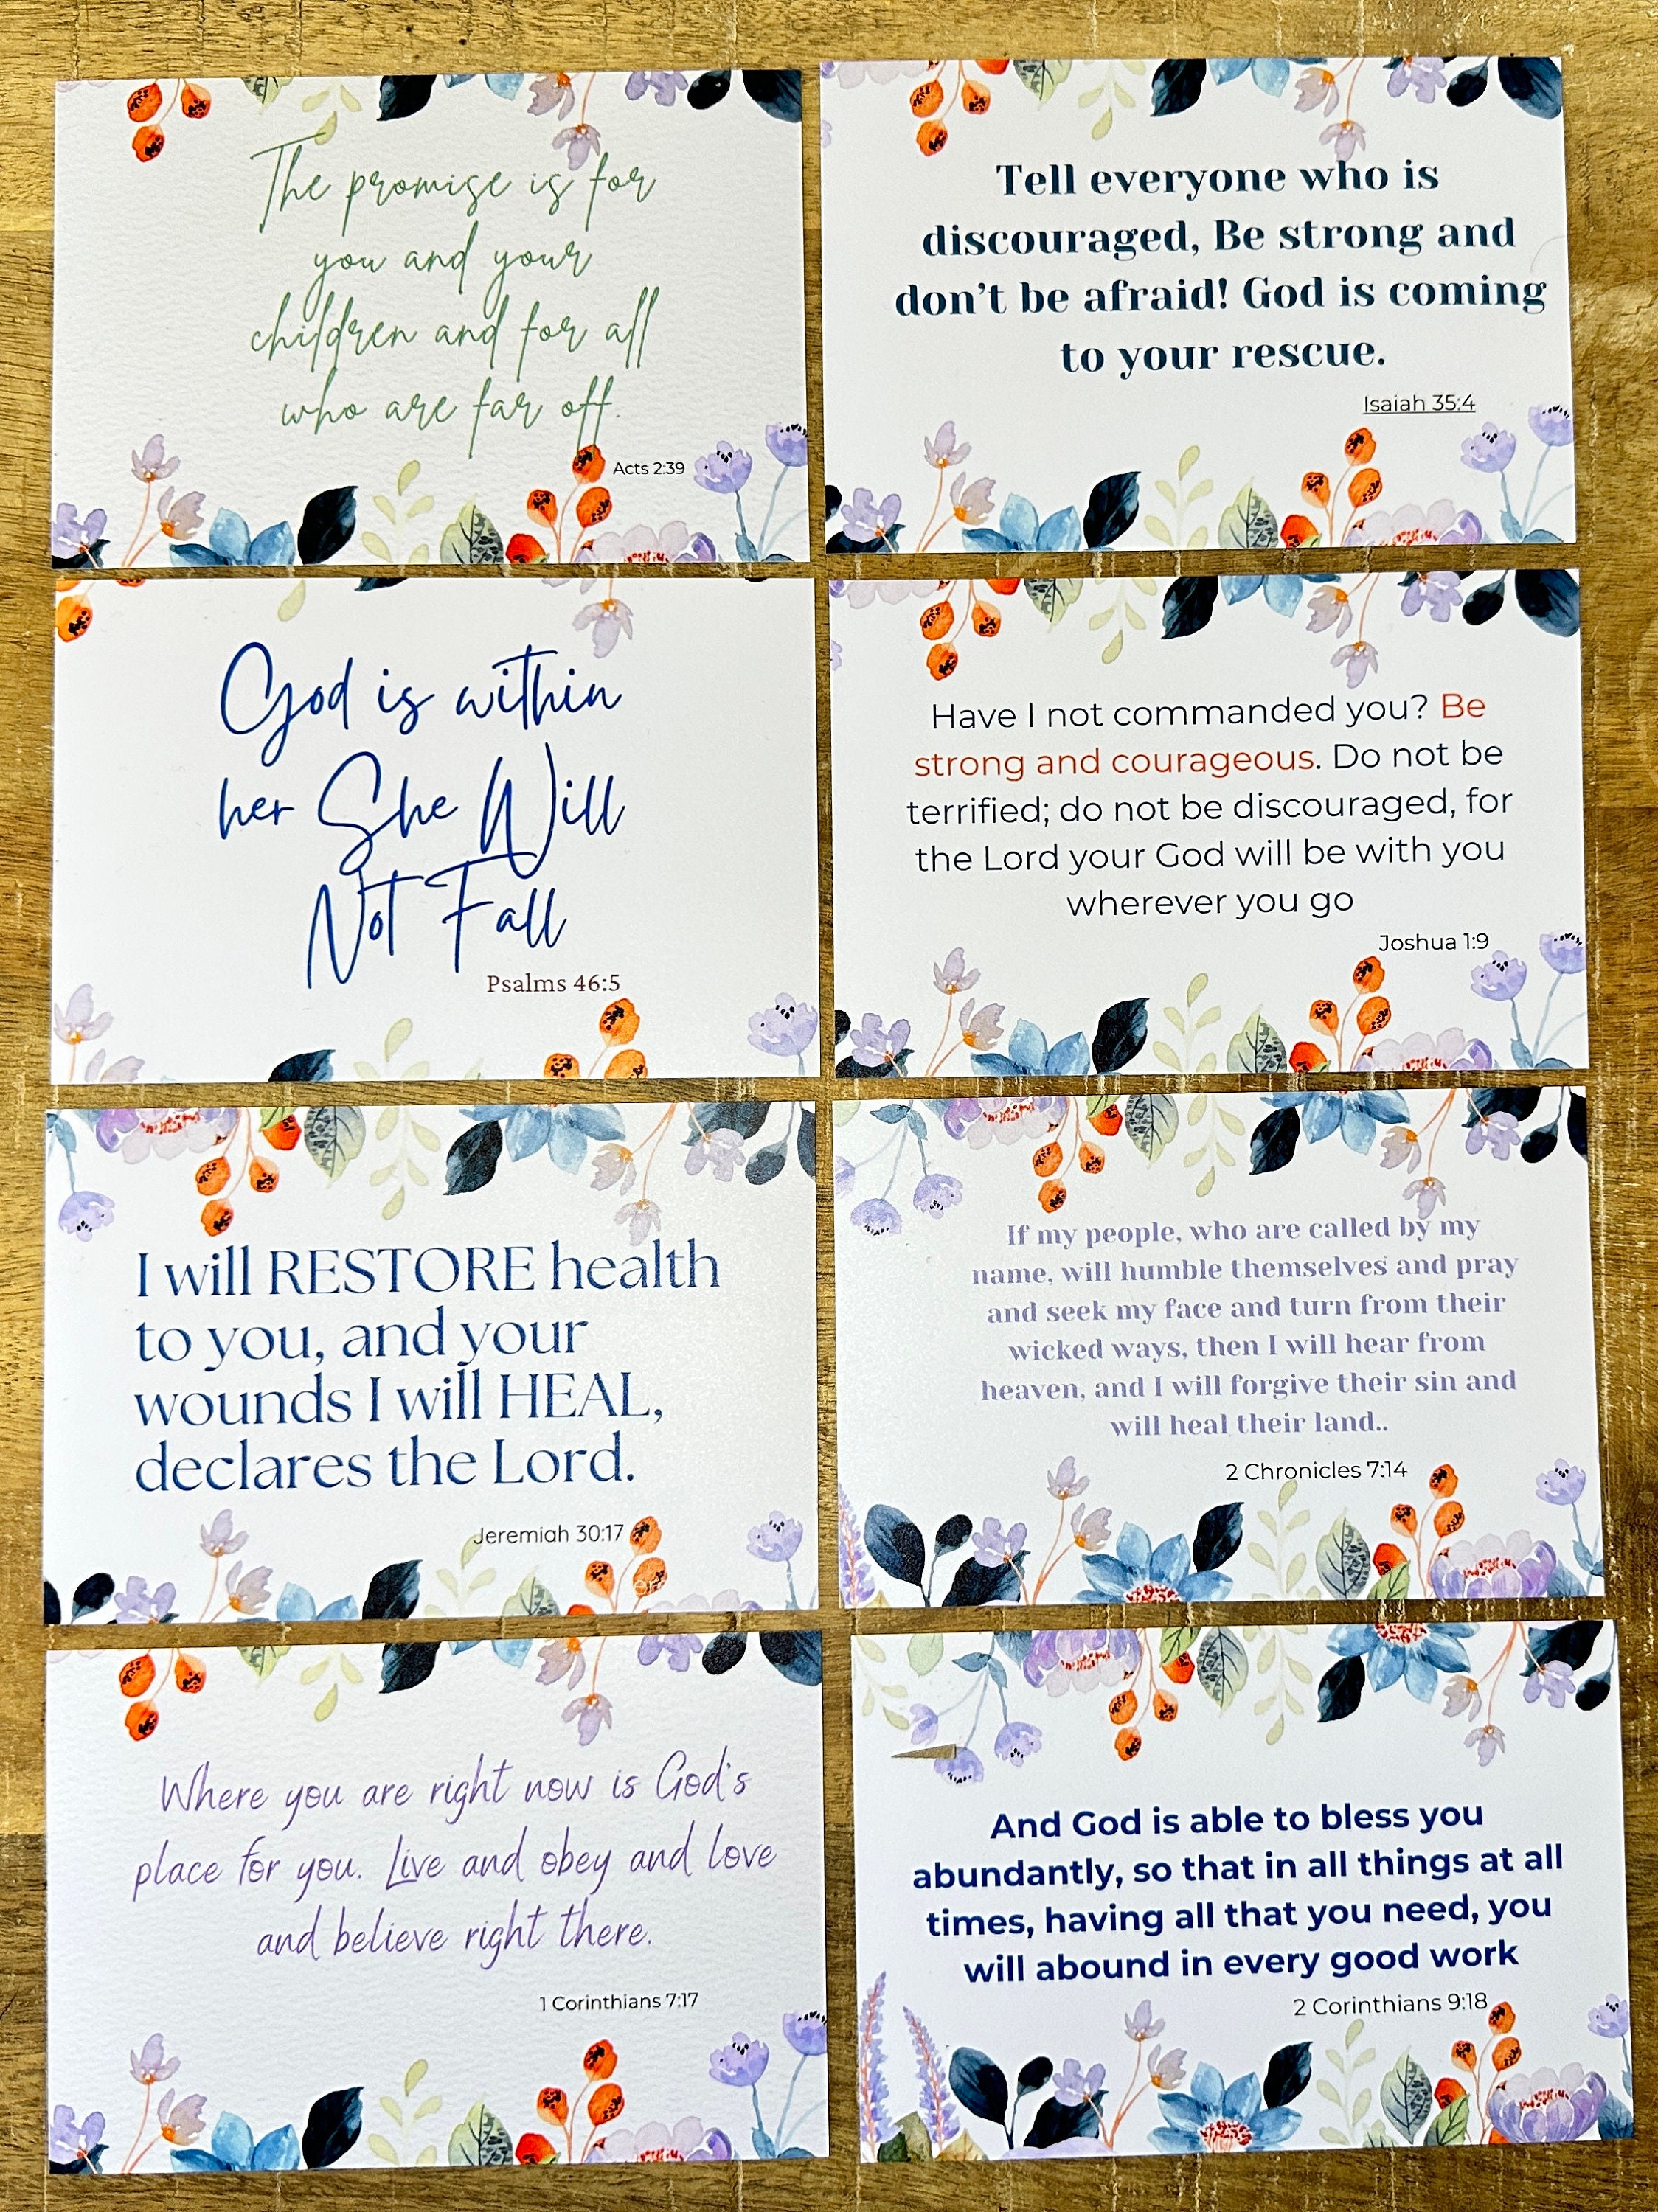 The promise is for
you and your
children and for all
who are far off.
Acts 2:39
Tell everyone who is
discouraged, Be strong and
don't be afraid! God is coming
to your rescue.
Isaiah 35:4
God is within
her She Will
Not Fall
Psalms 46:5
Have I not commanded you? Be
strong and courageous. Do not be
terrified; do not be discouraged, for
the Lord your God will be with you
wherever you go
Joshua 1:9
I will RESTORE health
to you, and your
wounds I will HEAL,
declares the Lord.
Jeremiah 30:17
If my people, who are called by my
name, will humble themselves and pray
and seek my face and turn from their
wicked ways, then I will hear from
heaven, and I will forgive their sin and
will heal their land..
2 Chronicles 7:14
Where you are right now is God's
place for you. Live and obey and love
and believe right there.
1 Corinthians 7:17
And God is able to bless you
abundantly, so that in all things at all
times, having all that you need, you
will abound in every good work
2 Corinthians 9:18